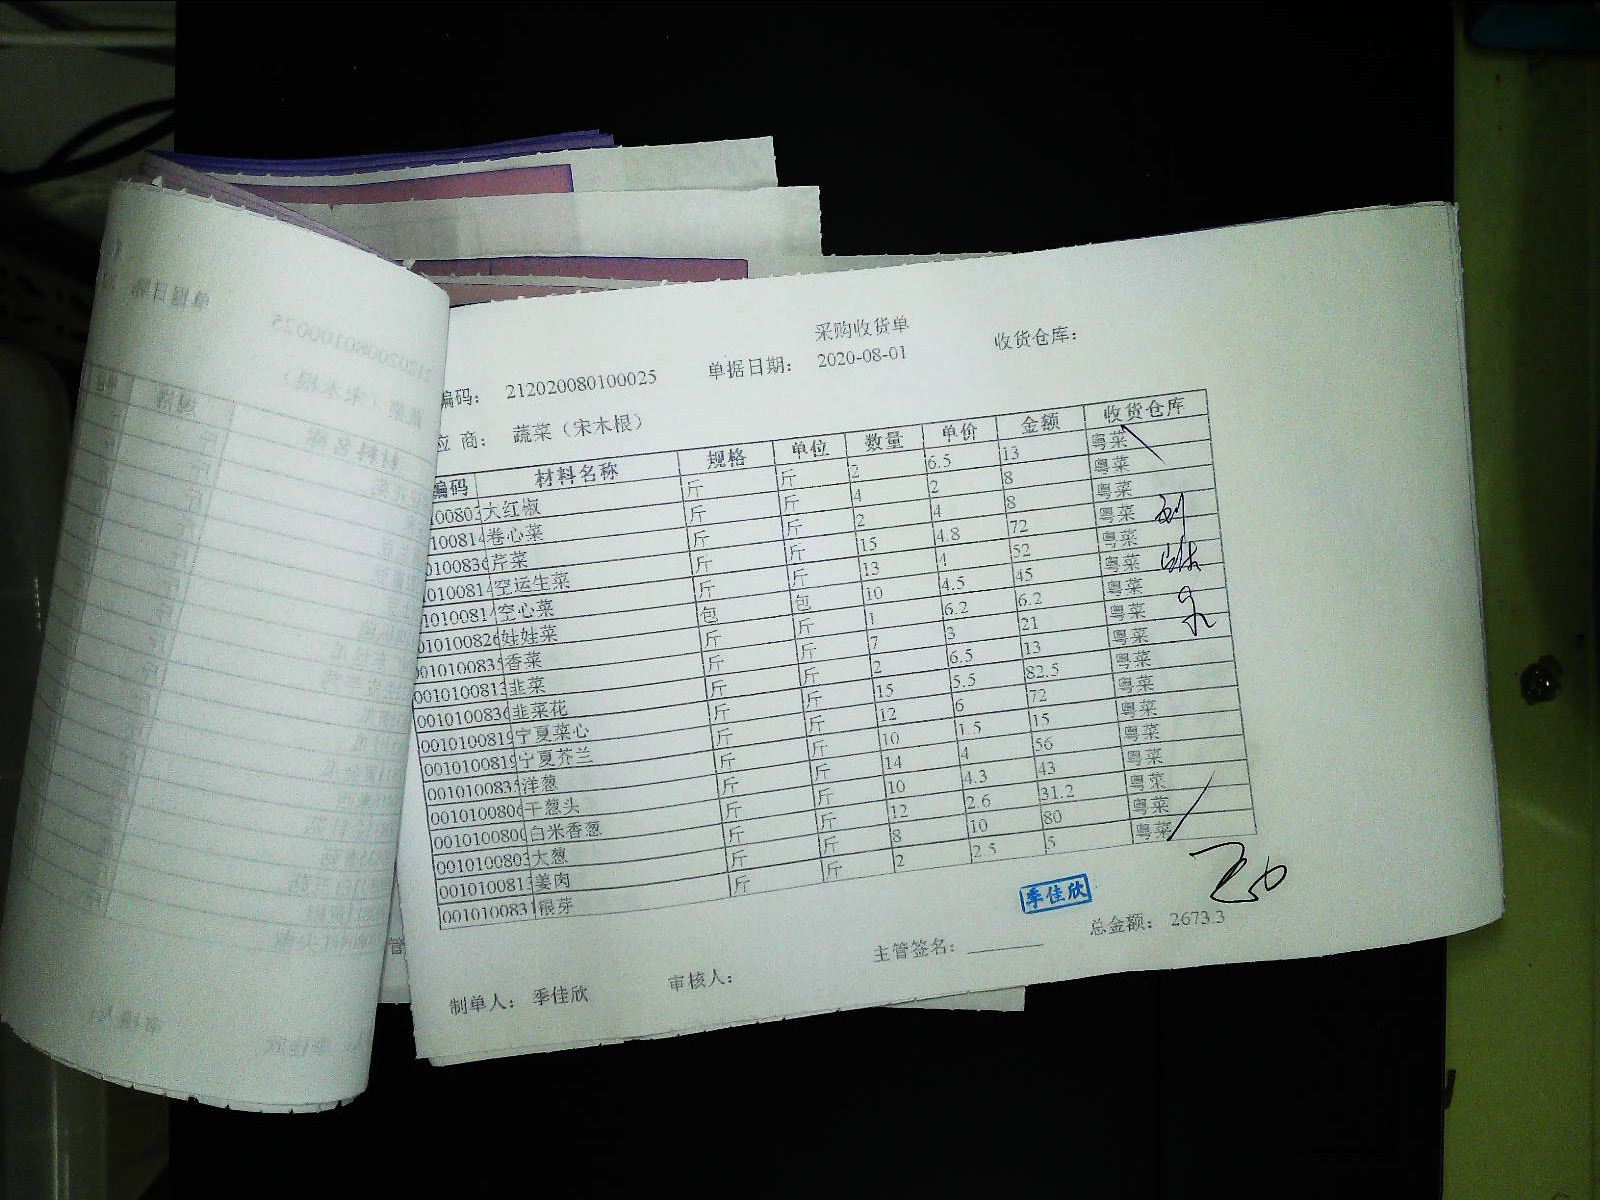 采购收货单
编码： 212020080100025 单据日期： 2020-08-01 收货仓库：
应 商： 蔬菜（宋木根）
编码 材料名称 规格 单位 数量 单价 金额 收货仓库
100803 大红椒 斤 斤 2 6.5 13 粤菜
100814 卷心菜 斤 斤 4 2 8 粤菜
0100836 芹菜 斤 斤 2 4 8 粤菜
0100814 空运生菜 斤 斤 15 4.8 72 粤菜
010100814 空心菜 斤 斤 13 4 52 粤菜
010100826 娃娃菜 包 包 10 4.5 45 粤菜
0010100835 香菜 斤 斤 1 6.2 6.2 粤菜
0010100813 韭菜 斤 斤 7 3 21 粤菜
0010100836 韭菜花 斤 斤 2 6.5 13 粤菜
0010100819 宁夏菜心 斤 斤 15 5.5 82.5 粤菜
0010100819 宁夏芥兰 斤 斤 12 6 72 粤菜
0010100835 洋葱 斤 斤 10 1.5 15 粤菜
0010100806 干葱头 斤 斤 14 4 56 粤菜
0010100800 白米香葱 斤 斤 10 4.3 43 粤菜
0010100803 大葱 斤 斤 12 2.6 31.2 粤菜
0010100813 姜肉 斤 斤 8 10 80 粤菜
0010100831 银芽 斤 斤 2 2.5 5 粤菜
季佳欣
制单人： 季佳欣 审核人： 主管签名： 总金额： 2673.3